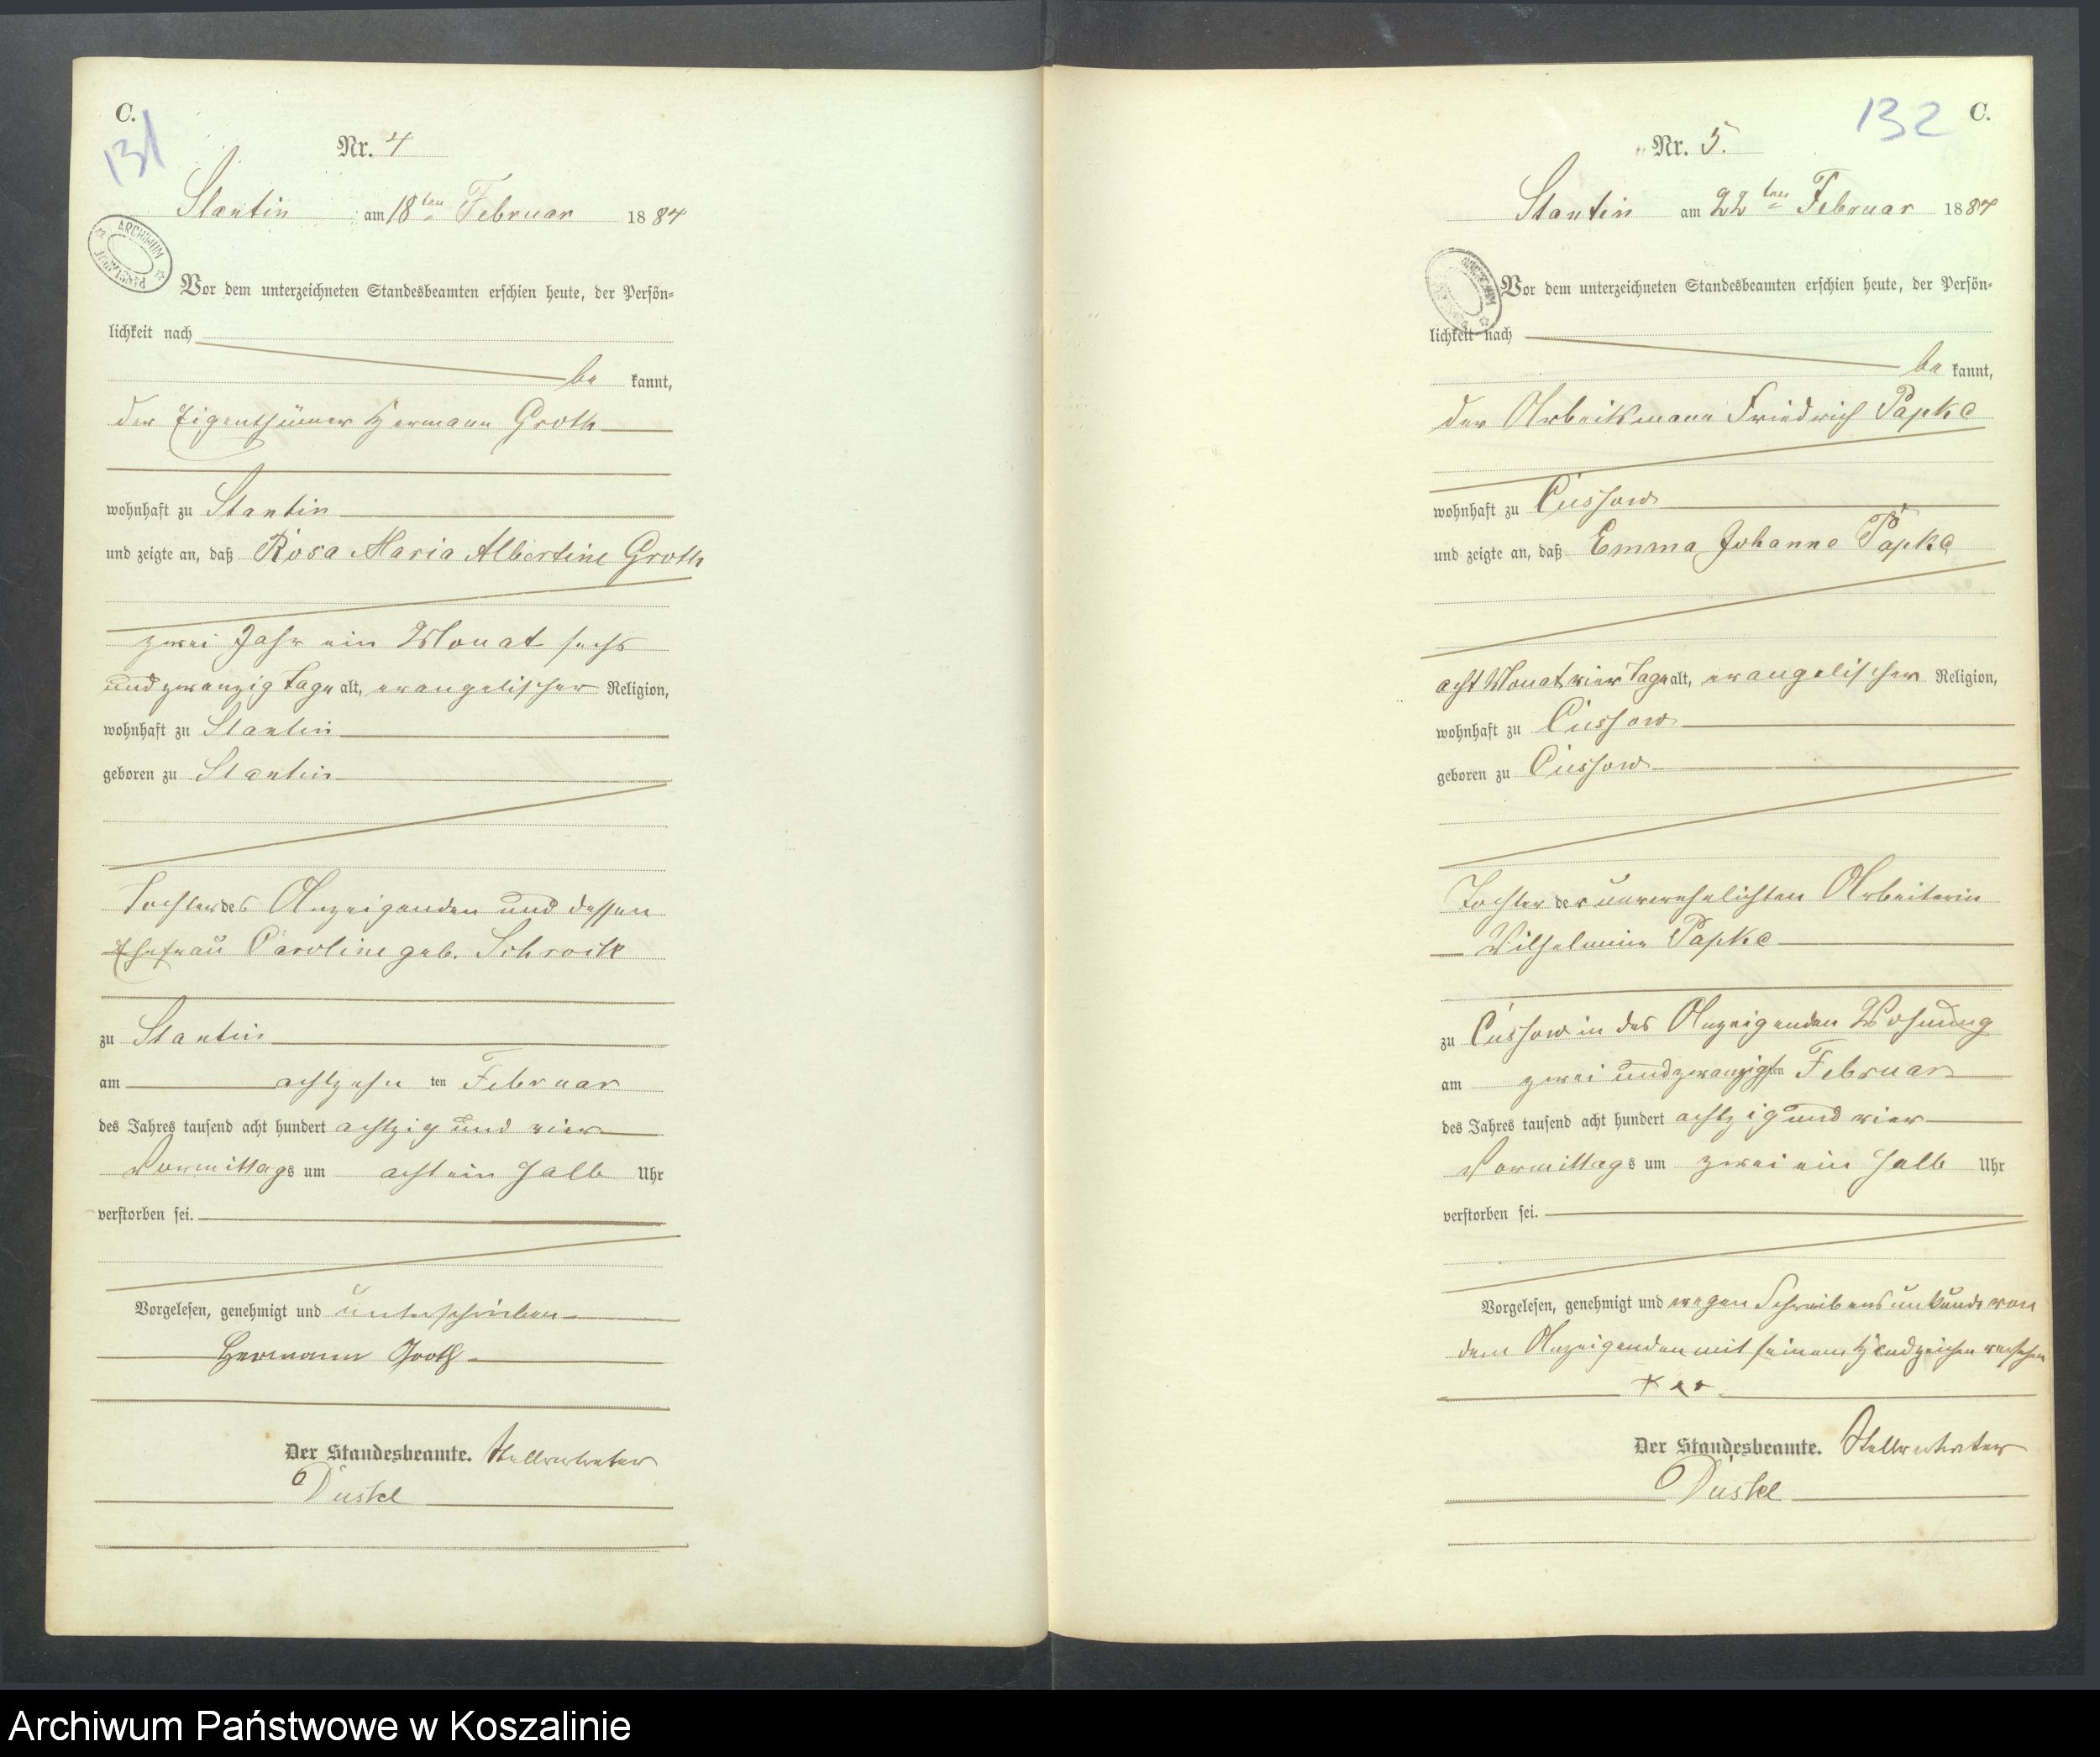 C.
131
Nr. 4
Stantin am 18ten Februar 1884
ARCHIWUM PAŃSTWOWE
Vor dem unterzeichneten Standesbeamten erschien heute, der Persön-
lichkeit nach
be kannt,
der Eigenthümer Hermann Groth
wohnhaft zu Stantin
und zeigte an, daß Rosa Maria Albertine Groth
zwei Jahr ein Monat sechs
und zwanzig Tage alt, evangelischer Religion,
wohnhaft zu Stantin
geboren zu Stantin
Tochter des Anzeigenden und dessen
Ehefrau Caroline geb. Schrock
zu Stantin
am achtzehn ten Februar
des Jahres tausend acht hundert achtzig und vier
Vormittags um acht ein halb Uhr
verstorben sei.
Vorgelesen, genehmigt und unterschrieben
Hermann Groth
Der Standesbeamte. Stellvertreter
132
C.
Nr. 5.
Stantin am 22ten Februar 1884
ARCHIWUM
Vor dem unterzeichneten Standesbeamten erschien heute, der Persön-
lichkeit nach
be kannt,
der Arbeitsmann Friedrich Papke
wohnhaft zu Cussow
und zeigte an, daß Emma Johanne Papke
acht Monat vier Tage alt, evangelischer Religion,
wohnhaft zu Cussow
geboren zu Cussow
Tochter der unverehelichten Arbeiterin
Wilhelmine Papke
zu Cussow in des Anzeigenden Wohnung
am zwei und zwanzigsten Februar
des Jahres tausend acht hundert achtzig und vier
Vormittags um zwei ein halb Uhr
verstorben sei.
Vorgelesen, genehmigt und wegen Schreibensunkunde von
dem Anzeigenden mit seinem Handzeichen versehen
+++
Der Standesbeamte. Stellvertreter
Archiwum Państwowe w Koszalinie